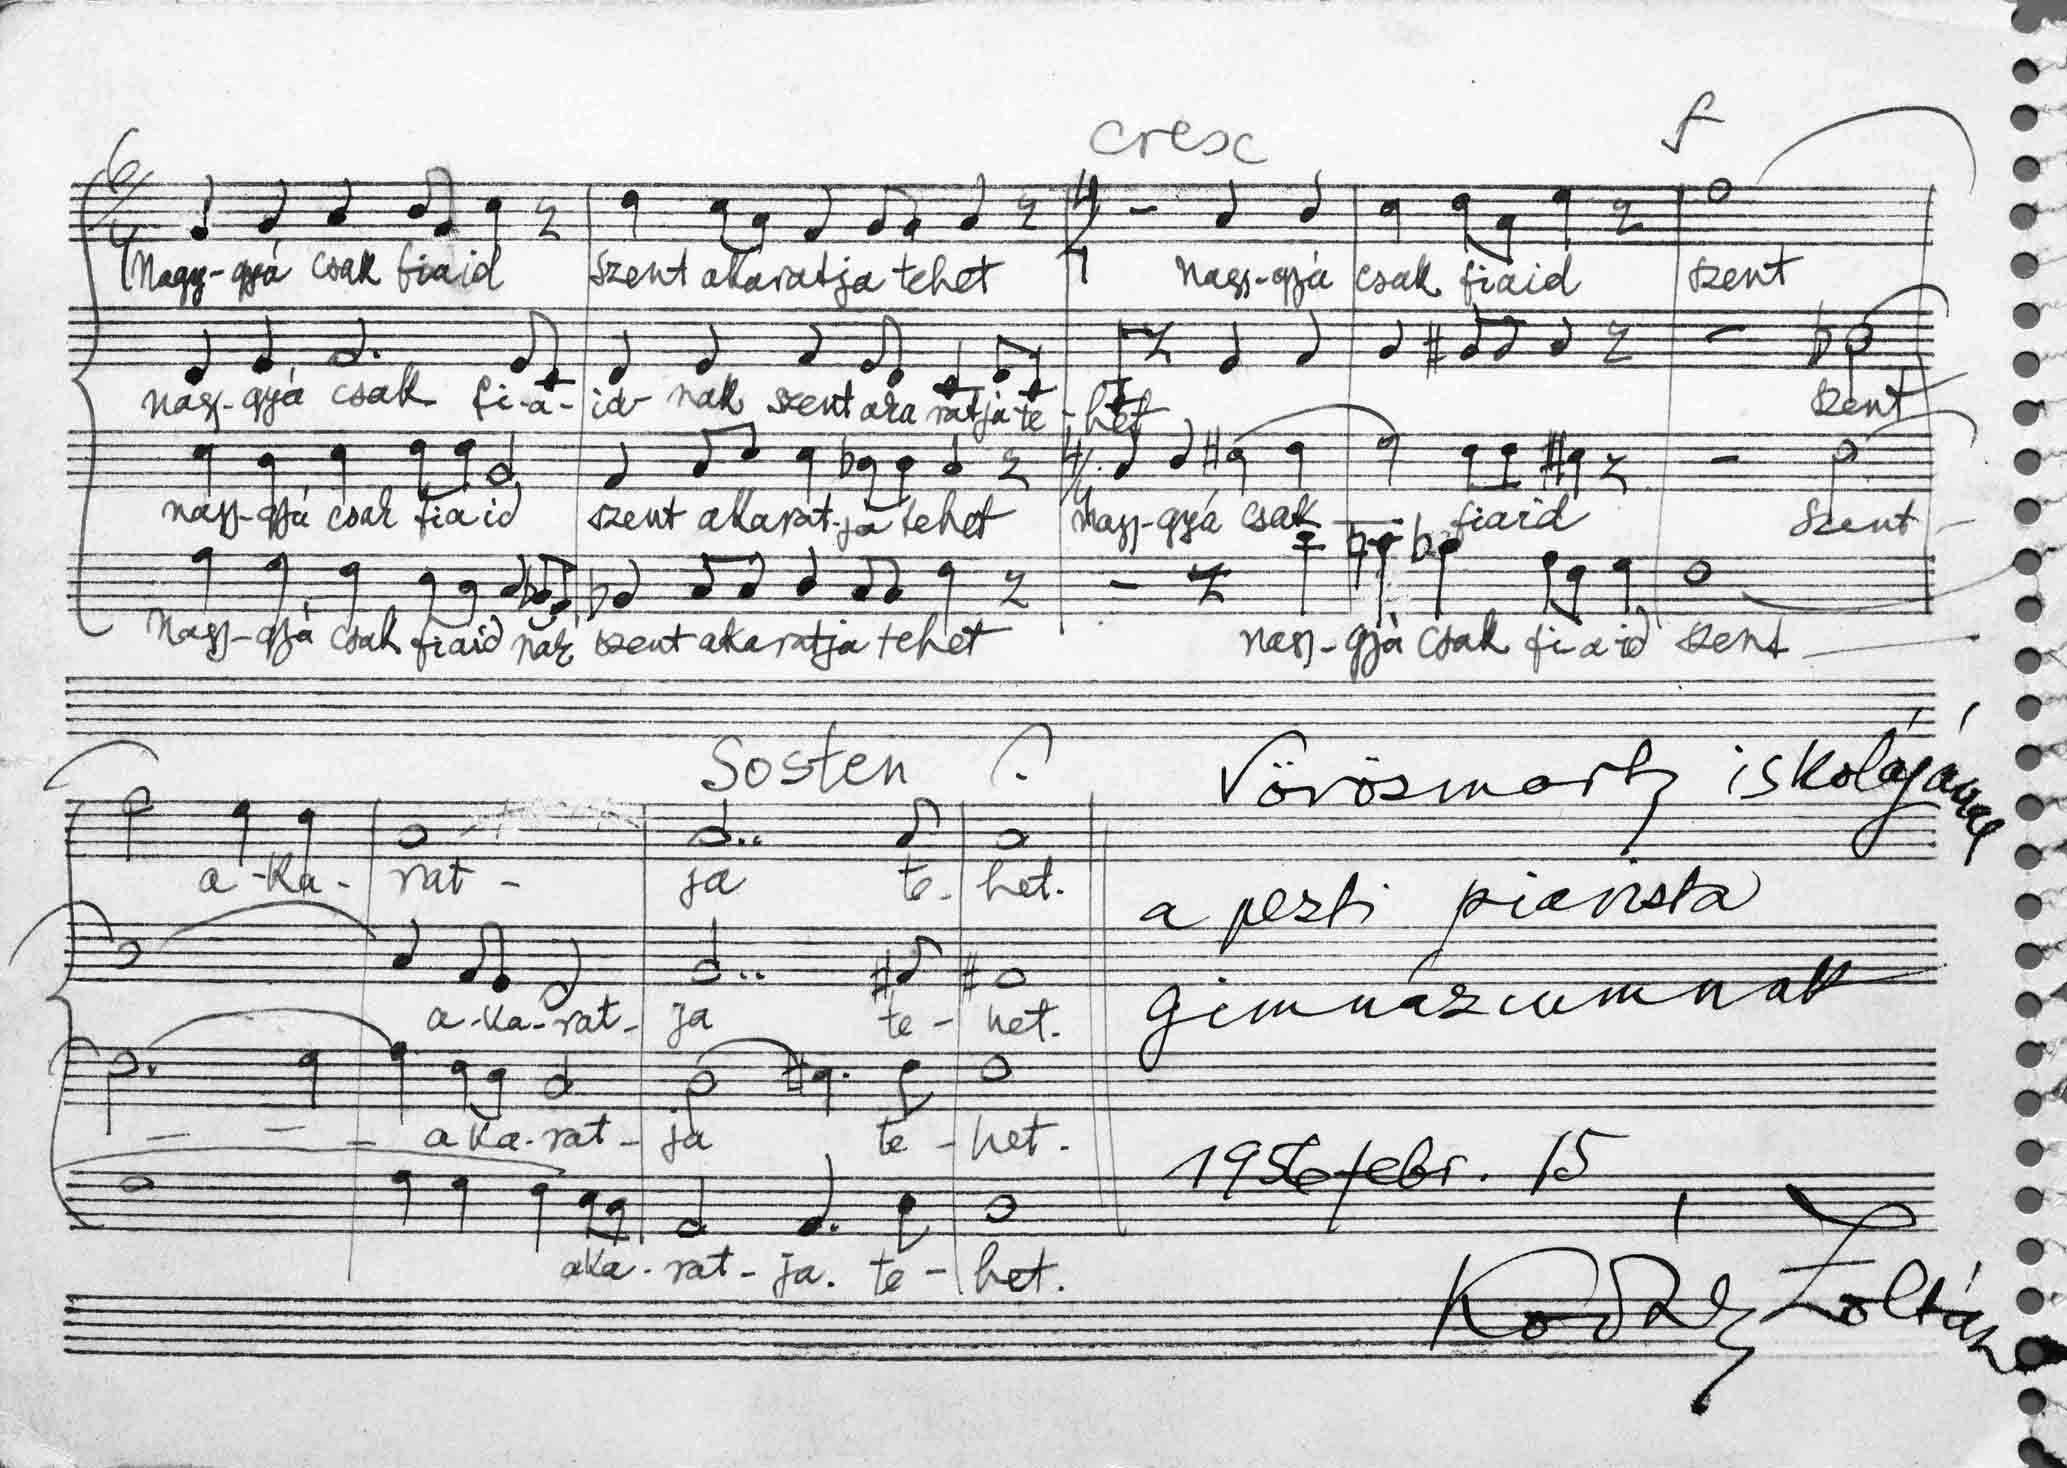 cresc f
6/4 4/4
Nagy-gyá csak fiaid szent akaratja tehet nagy-gyá csak fiaid szent
nagy-gyá csak fi-a-id-nak szent akaratja te-het szent
nagy-gyá csak fiaid szent akarat-ja tehet nagy-gyá csak fiaid szent -
Nagy-gyá csak fiaid nak szent akaratja tehet nagy-gyá csak fi-a-id szent
Sosten
a-ka-rat-ja te-het.
a-ka-rat-ja te-het.
aka-rat-ja te-het.
aka-rat-ja. te-het.
Vörösmarty iskolájának
a pesti piarista
gimnáziumnak
1956 febr. 15
Kodály Zoltán